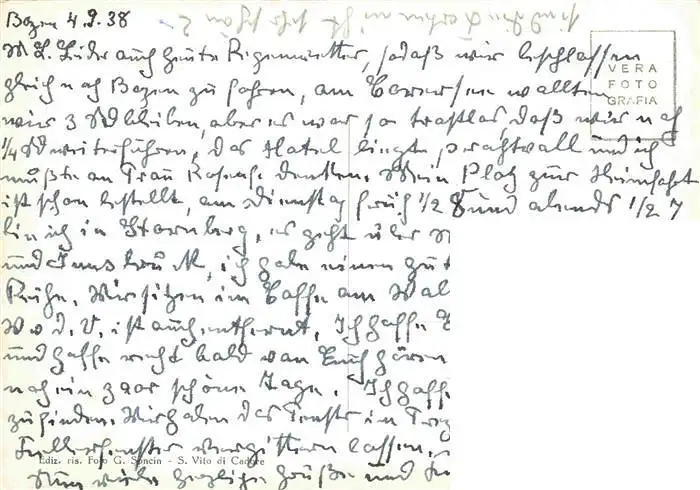 Bozen 4.9.38
sind die Farben nicht sehr schön?
M L. Leider auch heute Regenwetter, sodaß wir beschlossen
gleich nach Bozen zu fahren, am Carersee wollten
wir 3 Std bleiben, aber es war so trostlos, daß wir nach
1/4 Std weiterfuhren, das Hotel liegt prachtvoll und ich
mußte an Frau denken. Mein Platz zur Heimfahrt
ist schon bestellt, am Dienstag früh 1/2 8 und abends 1/2 7
bin ich in Starnberg, es geht über
und Innsbruck, ich habe einen
Ruhe. Wir sitzen im Caffe am Wal
W v d. V. ist auch entfernt. Ich hoffe
und hoffe recht bald von Euch hören
noch ein paar schöne Tage. Ich hoff
zu finden. Wir haben das Fenster im
Kellerfenster vergittern lassen.
Nun viele herzliche Grüße und
VERA
FOTO
GRAFIA
Ediz. ris. Foto G. Soncin - S. Vito di Cadore